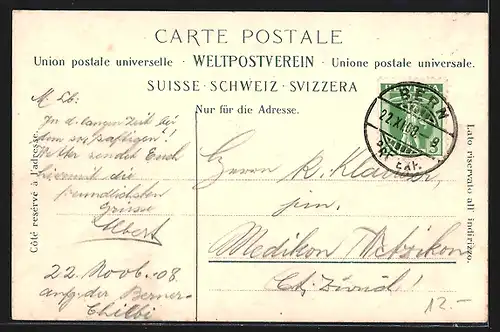 CARTE POSTALE
Union postale universelle · WELTPOSTVEREIN · Unione postale universale.
SUISSE · SCHWEIZ · SVIZZERA
Nur für die Adresse.
Côté réservé à l'adresse.
Lato riservato all' indirizzo.
BERN
22.XI.08. 8
EXP.
M. Lb:
In d. langen Zeit bei
dem
Wetter sendet Euch
hiermit die
freundlichsten
Grüsse
Albert
22. Novb. 08
aufg. der Berner-
Chilbi
Herrn K.
jun.
Medikon Wetzikon
Ct. Zürich!
12.-